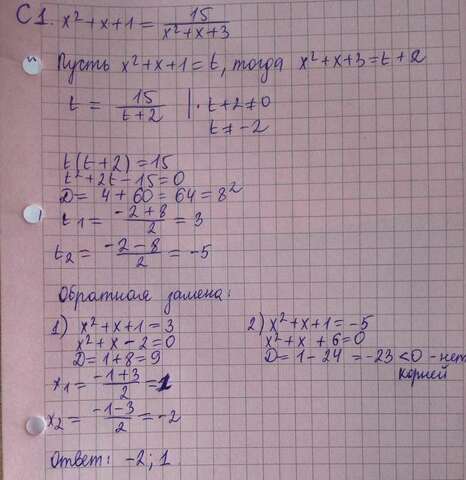 С1. x²+x+1 = 15/(x²+x+3)
Пусть x²+x+1=t, тогда x²+x+3=t+2
t = 15/(t+2) | · t+2≠0
t≠-2
t(t+2)=15
t²+2t-15=0
D= 4+60=64=8²
t₁= (-2+8)/2 = 3
t₂= (-2-8)/2 = -5
Обратная замена:
1) x²+x+1=3
x²+x-2=0
D=1+8=9
x₁= (-1+3)/2 = 1
x₂= (-1-3)/2 = -2
2) x²+x+1=-5
x²+x+6=0
D=1-24=-23<0 - нет
корней
Ответ: -2; 1